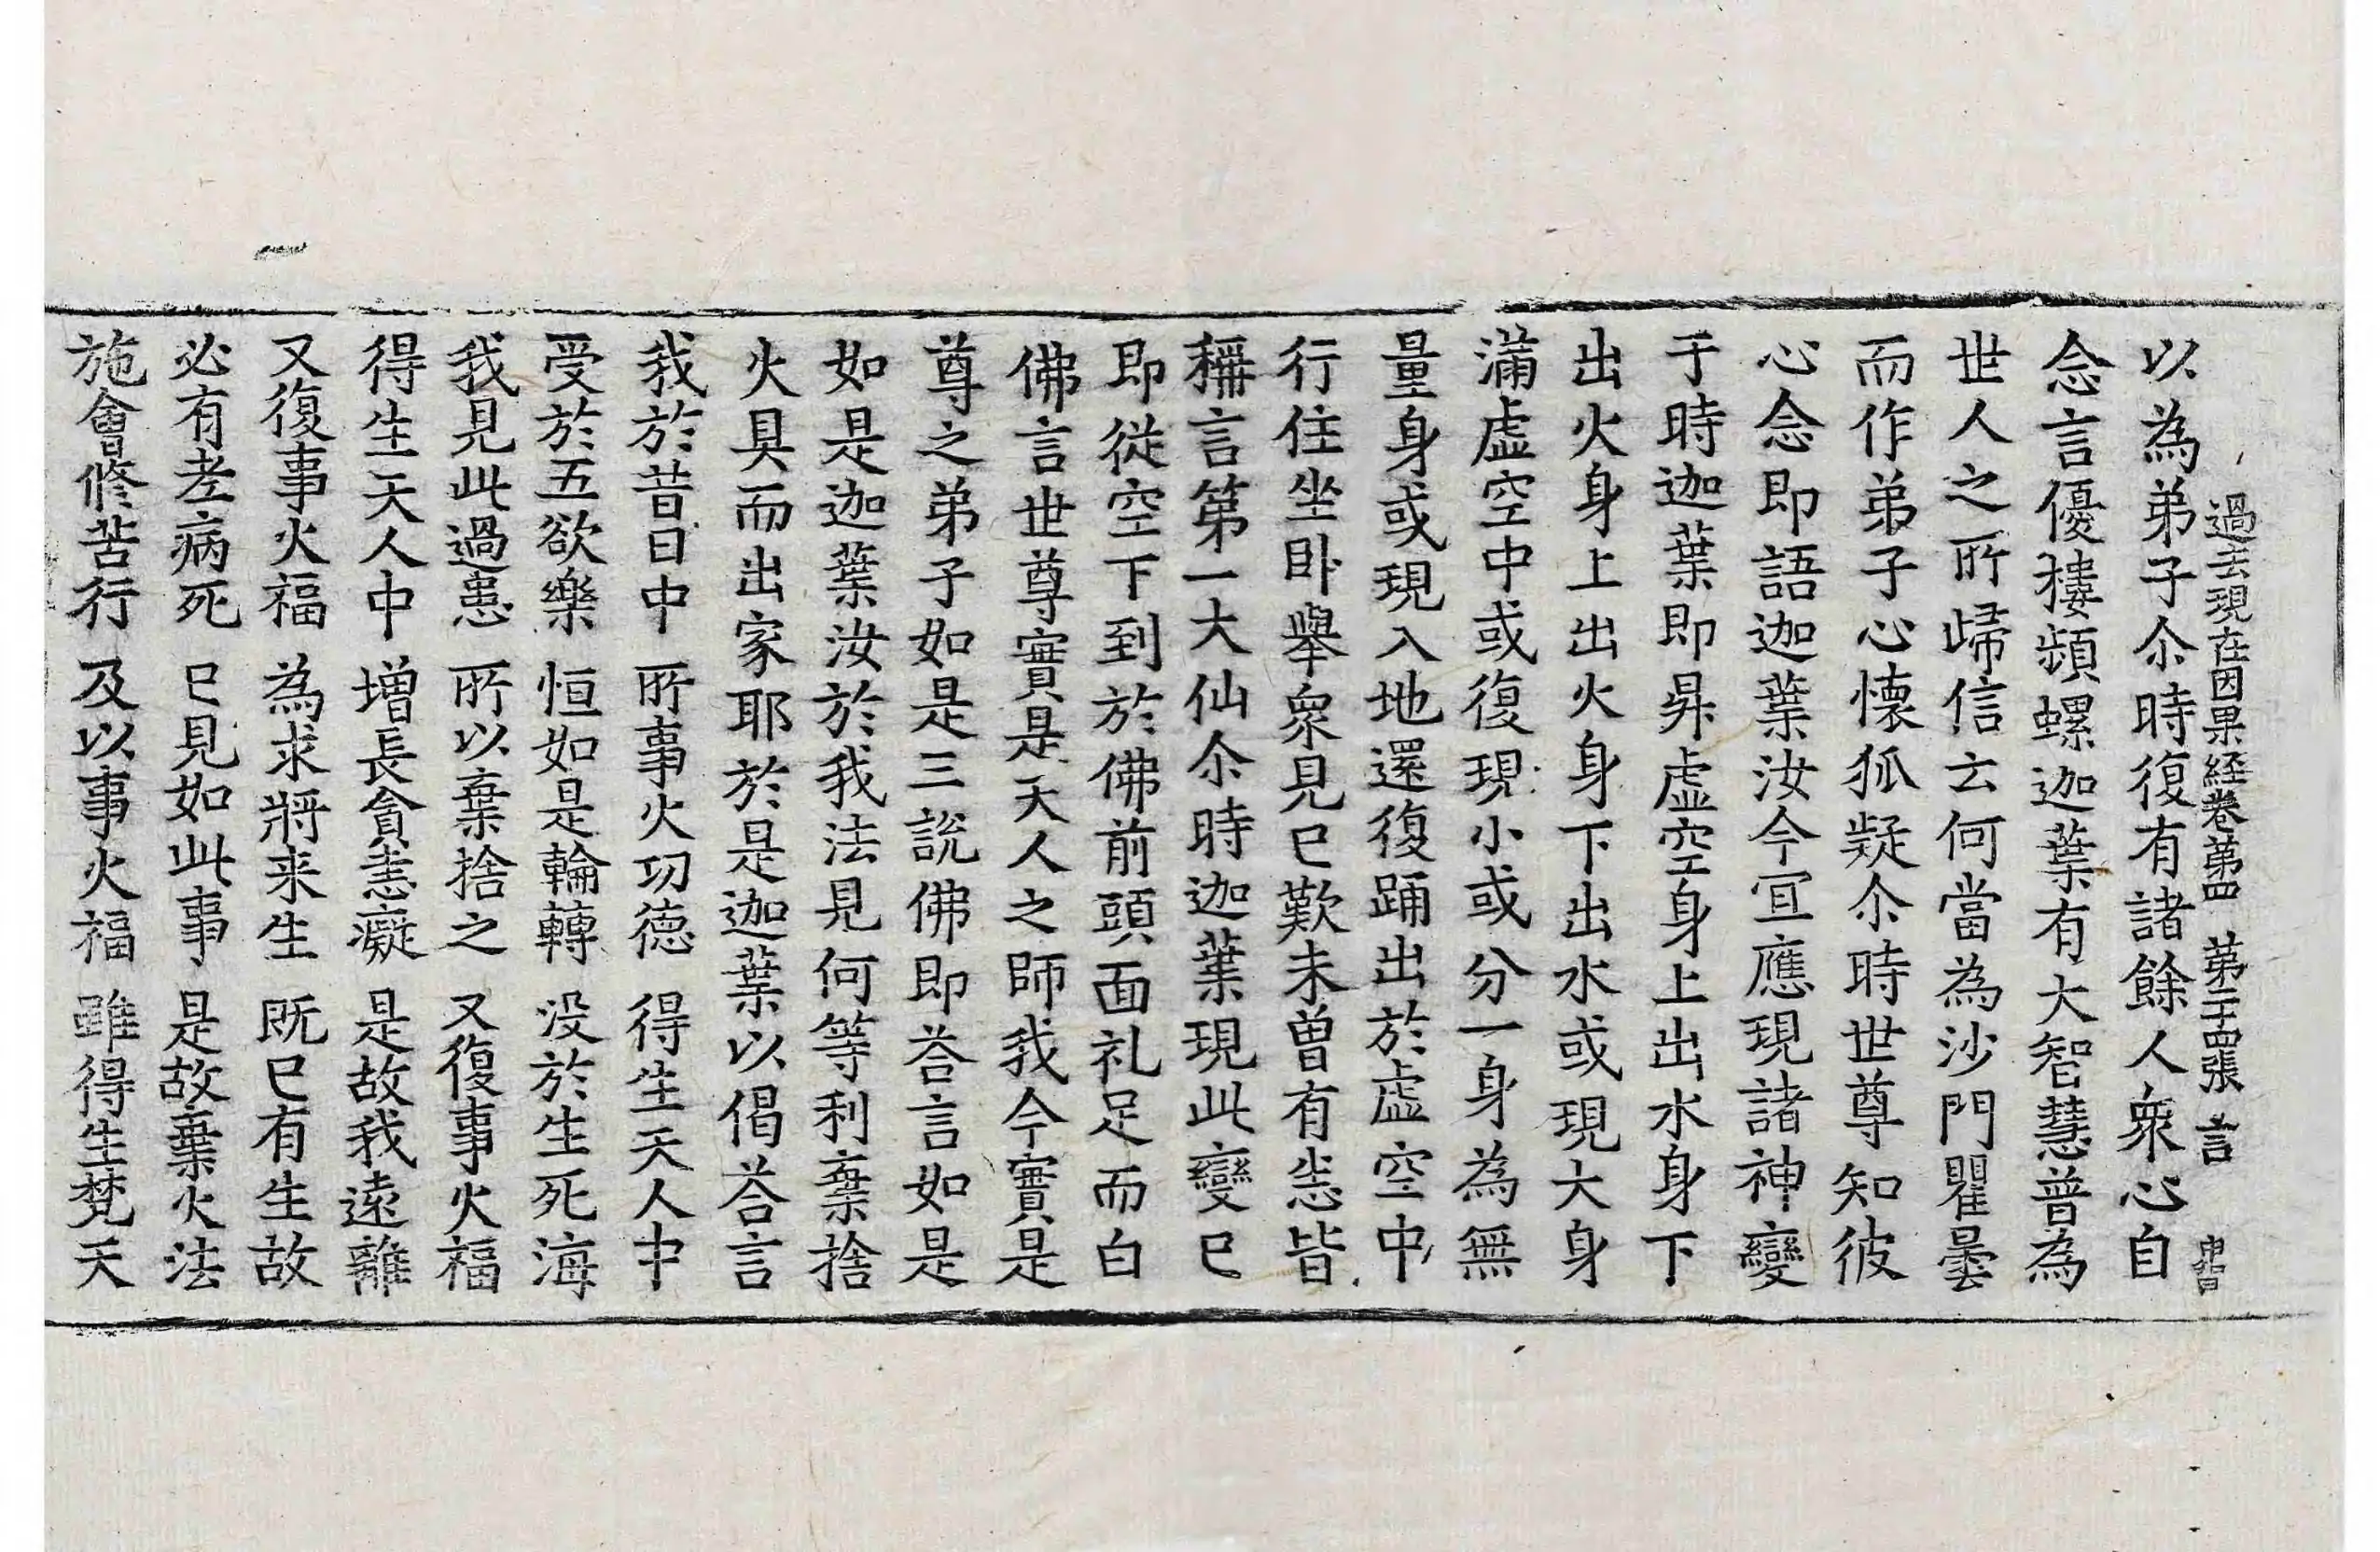 過去現在因果経卷第四 第二十四張 言 申智
以為弟子尒時復有諸餘人衆心自
念言優樓頻螺迦葉有大智慧普為
世人之所歸信云何當為沙門瞿曇
而作弟子心懷狐疑尒時世尊知彼
心念即語迦葉汝今宜應現諸神變
于時迦葉即昇虛空身上出水身下
出火身上出火身下出水或現大身
滿虛空中或復現小或分一身為無
量身或現入地還復踊出於虛空中
行住坐臥舉衆見已歎未曾有悉皆
稱言第一大仙尒時迦葉現此變已
即從空下到於佛前頭面礼足而白
佛言世尊實是天人之師我今實是
尊之弟子如是三說佛即荅言如是
如是迦葉汝於我法見何等利棄捨
火具而出家耶於是迦葉以偈荅言
我於昔日中 所事火功德 得生天人中
受於五欲樂 恒如是輪轉 没於生死海
我見此過患 所以棄捨之 又復事火福
得生天人中 增長貪恚癡 是故我遠離
又復事火福 為求將来生 既已有生故
必有老病死 已見如此事 是故棄火法
施會修苦行 及以事火福 雖得生梵天